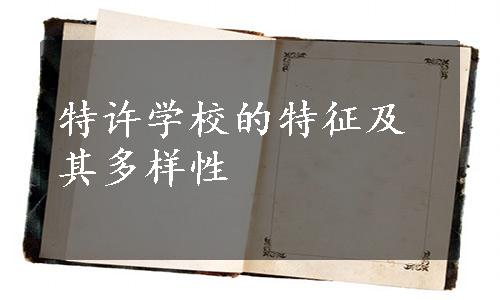 特许学校的特征及
其多样性